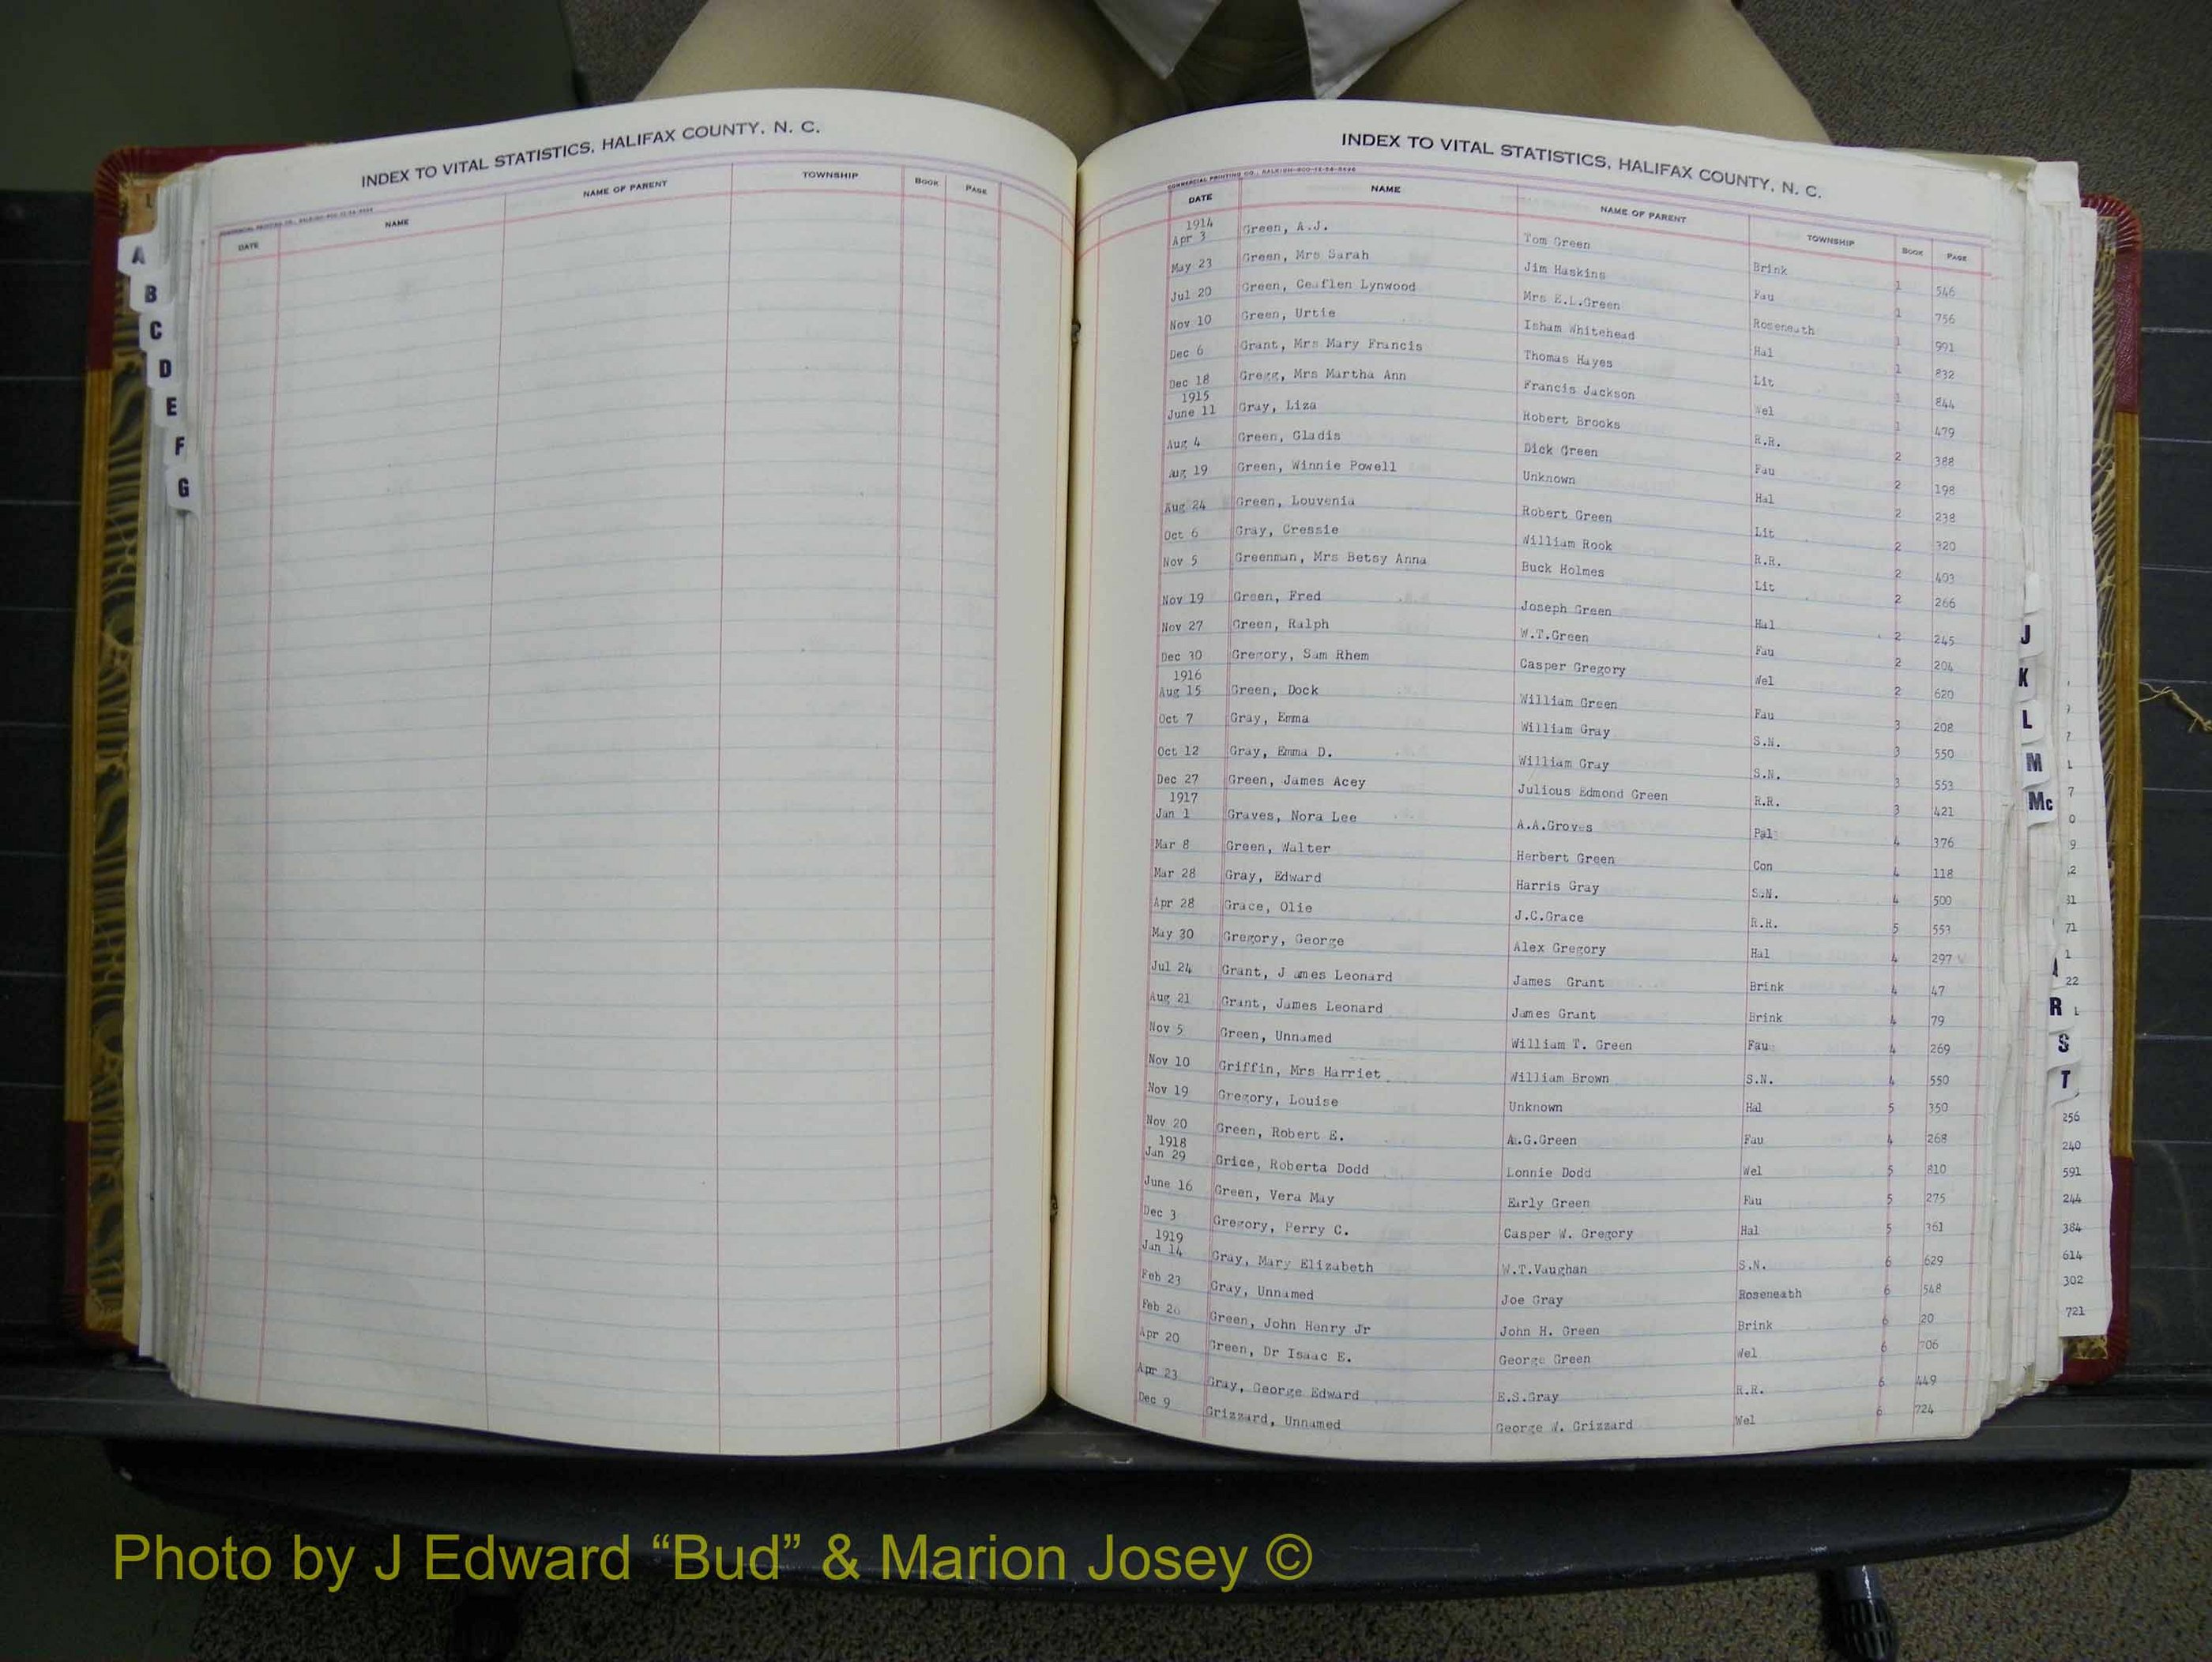 INDEX TO VITAL STATISTICS, HALIFAX COUNTY, N. C.
DATE NAME NAME OF PARENT TOWNSHIP BOOK PAGE
A
B
C
D
E
F
G
INDEX TO VITAL STATISTICS, HALIFAX COUNTY, N. C.
DATE NAME NAME OF PARENT TOWNSHIP BOOK PAGE
1914
Apr 3 Green, A.J. Tom Green Brink 1 546
May 23 Green, Mrs Sarah Jim Haskins Fau 1 756
Jul 20 Green, Lynwood Mrs E.L.Green Roseneath 1 991
Nov 10 Green, Urtie Isham Whitehead Hal 1 832
Dec 6 Grant, Mrs Mary Francis Thomas Hayes Lit 1 844
Dec 18 Gregg, Mrs Martha Ann Francis Jackson Wel 1 479
1915
June 11 Gray, Liza Robert Brooks R.R. 2 388
Aug 4 Green, Gladis Dick Green Fau 2 198
Aug 19 Green, Winnie Powell Unknown Hal 2 238
Aug 24 Green, Louvenia Robert Green Lit 2 320
Oct 6 Gray, Cressie William Rook R.R. 2 403
Nov 5 Greenman, Mrs Betsy Anna Buck Holmes Lit 2 266
Nov 19 Green, Fred Joseph Green Hal 2 245
Nov 27 Green, Ralph W.T.Green Fau 2 204
Dec 30 Gregory, Sam Rhem Casper Gregory Wel 2 620
1916
Aug 15 Green, Dock William Green Fau 3 208
Oct 7 Gray, Emma William Gray S.N. 3 550
Oct 12 Gray, Emma D. William Gray S.N. 3 553
Dec 27 Green, James Acey Julious Edmond Green R.R. 3 421
1917
Jan 1 Graves, Nora Lee A.A.Groves Pal 4 376
Mar 8 Green, Walter Herbert Green Con 4 118
Mar 28 Gray, Edward Harris Gray S.N. 4 500
Apr 28 Grace, Olie J.C.Grace R.R. 5 553
May 30 Gregory, George Alex Gregory Hal 4 297
Jul 24 Grant, J ames Leonard James Grant Brink 4 47
Aug 21 Grant, James Leonard James Grant Brink 4 79
Nov 5 Green, Unnamed William T. Green Fau 4 269
Nov 10 Griffin, Mrs Harriet William Brown S.N. 4 550
Nov 19 Gregory, Louise Unknown Hal 5 350
Nov 20 Green, Robert E. A.G.Green Fau 4 268
1918
Jan 29 Grice, Roberta Dodd Lonnie Dodd Wel 5 810
June 16 Green, Vera May Early Green Fau 5 275
Dec 3 Gregory, Perry C. Casper W. Gregory Hal 5 361
1919
Jan 14 Gray, Mary Elizabeth W.T.Vaughan S.N. 6 629
Feb 23 Gray, Unnamed Joe Gray Roseneath 6 548
Feb Green, John Henry Jr John H. Green Brink 6 20
Apr 20 Green, Dr Isaac E. George Green Wel 6 706
Apr 23 Gray, George Edward E.S.Gray R.R. 6 449
Dec 9 Grizzard, Unnamed George W. Grizzard Wel 6 724
J
K
L
M
Mc
R
S
T
256
240
591
244
384
614
302
721
Photo by J Edward “Bud” & Marion Josey ©